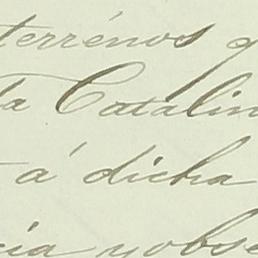 terrénos q
ta Catalin
á dicha
cia y obse